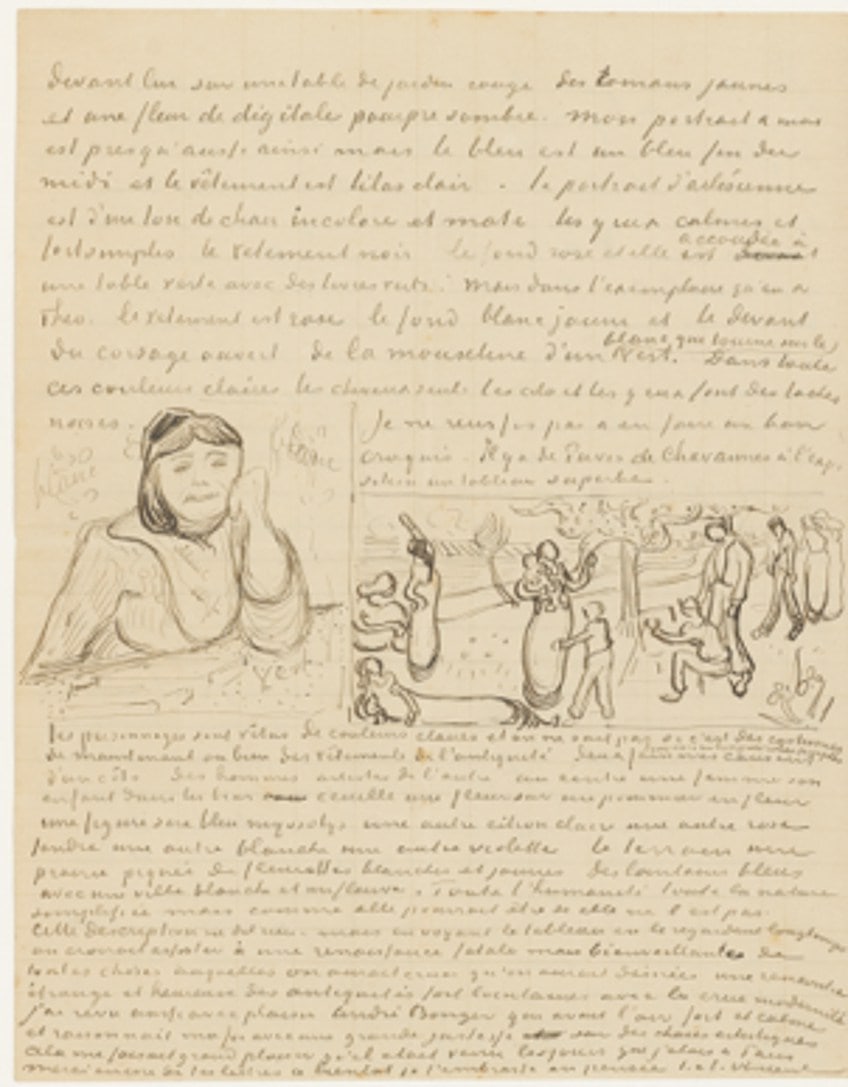 devant lui sur une table de jardin rouge des romans jaunes
et une fleur de digitale pourpre sombre. Mon portrait à moi
est presqu'aussi ainsi mais le bleu est un bleu fin du
midi et le vêtement est lilas clair. le portrait d'arlésienne
est d'un ton de chair incolore et mate les yeux calmes et
fort simples le vetement noir le fond rose et elle est accoudée à
une table verte avec des livres verts. Mais dans l'exemplaire qu'en a
Theo. le vetement est rose le fond blanc jaune et le devant
du corsage ouvert de la mousseline d'un blanc qui tourne sur le
vert. Dans toutes
ces couleurs claires les cheveux seuls les cils et les yeux font des taches
noires.
blanc
blanc
vert
Je ne reussis pas a en faire un bon
croquis. Il y a de Puvis de Chavannes à l'exp-
sition un tableau superbe.
les personnages sont vêtus de couleurs claires et on ne sait pas si c'est des costumes
de maintenant ou bien des vêtements de l'antiquité deux femmes causent
d'un côté des hommes artistes de l'autre au centre une femme son
enfant dans les bras cueille une fleur sur un pommier en fleur
une figure sera bleu myosotys une autre citron clair une autre rose
tendre une autre blanche une autre violette le terrain une
prairie piquée de fleurettes blanches et jaunes des lointains bleus
avec une ville blanche et un fleuve. Toute l'humanité toute la nature
simplifiée mais comme elle pourrait être si elle ne l'est pas.
Cette description ne dit rien – mais en voyant le tableau en le regardant longtemps
on croirait assister à une renaissance fatale mais bienveillante de
toutes choses auxquelles on aurait cru qu'on aurait désirées une rencontre
étrange et heureuse des antiquités fort lointaines avec la crue modernité
j'ai revu aussi avec plaisir André Bonger qui avait l'air fort et calme
et raisonnait ma foi avec une grande justesse sur des choses artistiques
cela me faisait grand plaisir qu'il était venu les jours que j'etais à Paris
merci encore de tes lettres à bientôt je t'embrasse en pensée t. à t. Vincent